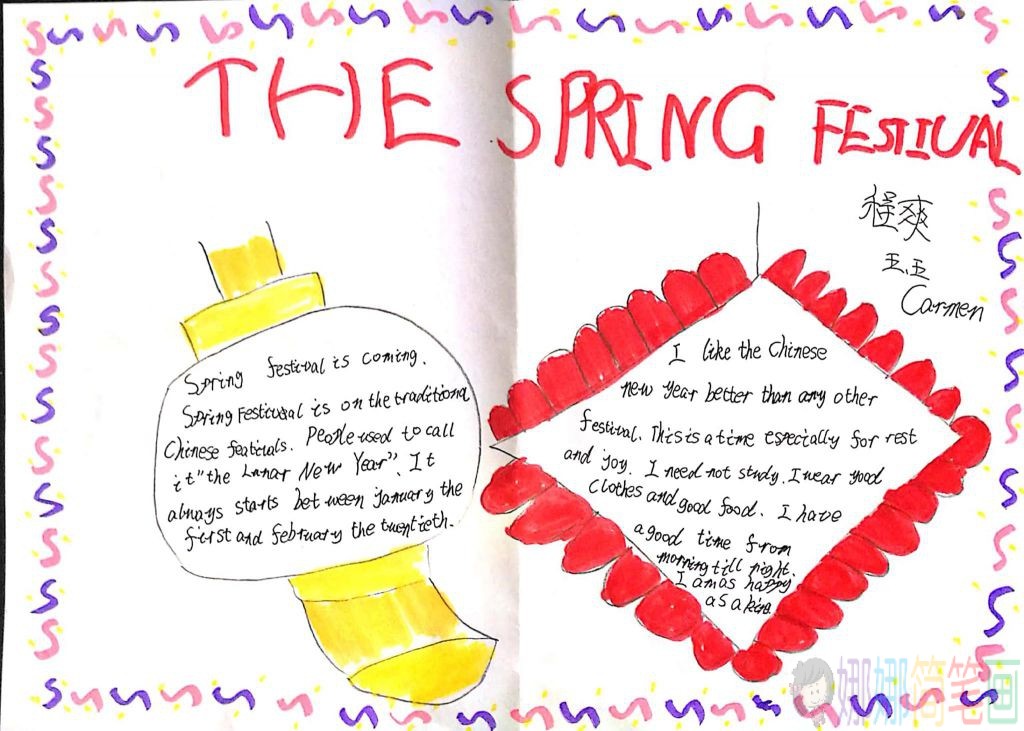 THE SPRING FESTIVAL
程爽
五.五
Carmen
Spring festival is coming.
Spring Festiusal is on the traditiona
Chinese featiuals. People used to call
it "the Lanar New Year". It
always starts between january the
first and february the twentieth.
I like the Chinese
new year better than any other
festival. This is a time especially for rest
and joy. I need not study. I wear good
clothes and good food. I have
a good time from
morning till night.
I am as happy
as a king.
娜娜简笔画